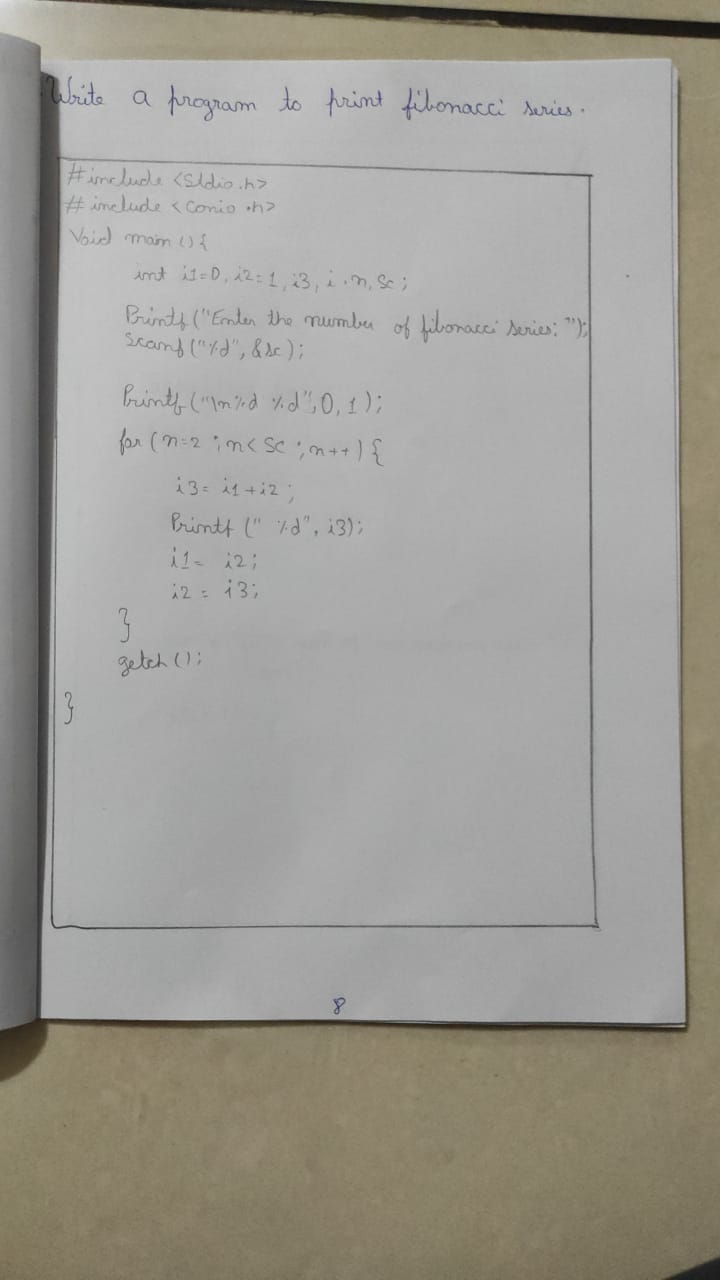 Write a program to print fibonacci series.
#include <Stdio.h>
#include <Conio.h>
Void main () {
int i1=0, i2=1, i3, i, n, Sc;
Printf ("Enter the number of fibonacci series: ");
Scanf ("%d", &sc);
Printf ("\n%d %d", 0, 1);
for (n=2 ; n< Sc ; n++) {
i3= i1+i2;
Printf (" %d", i3);
i1= i2;
i2 = i3;
}
getch ();
}
8